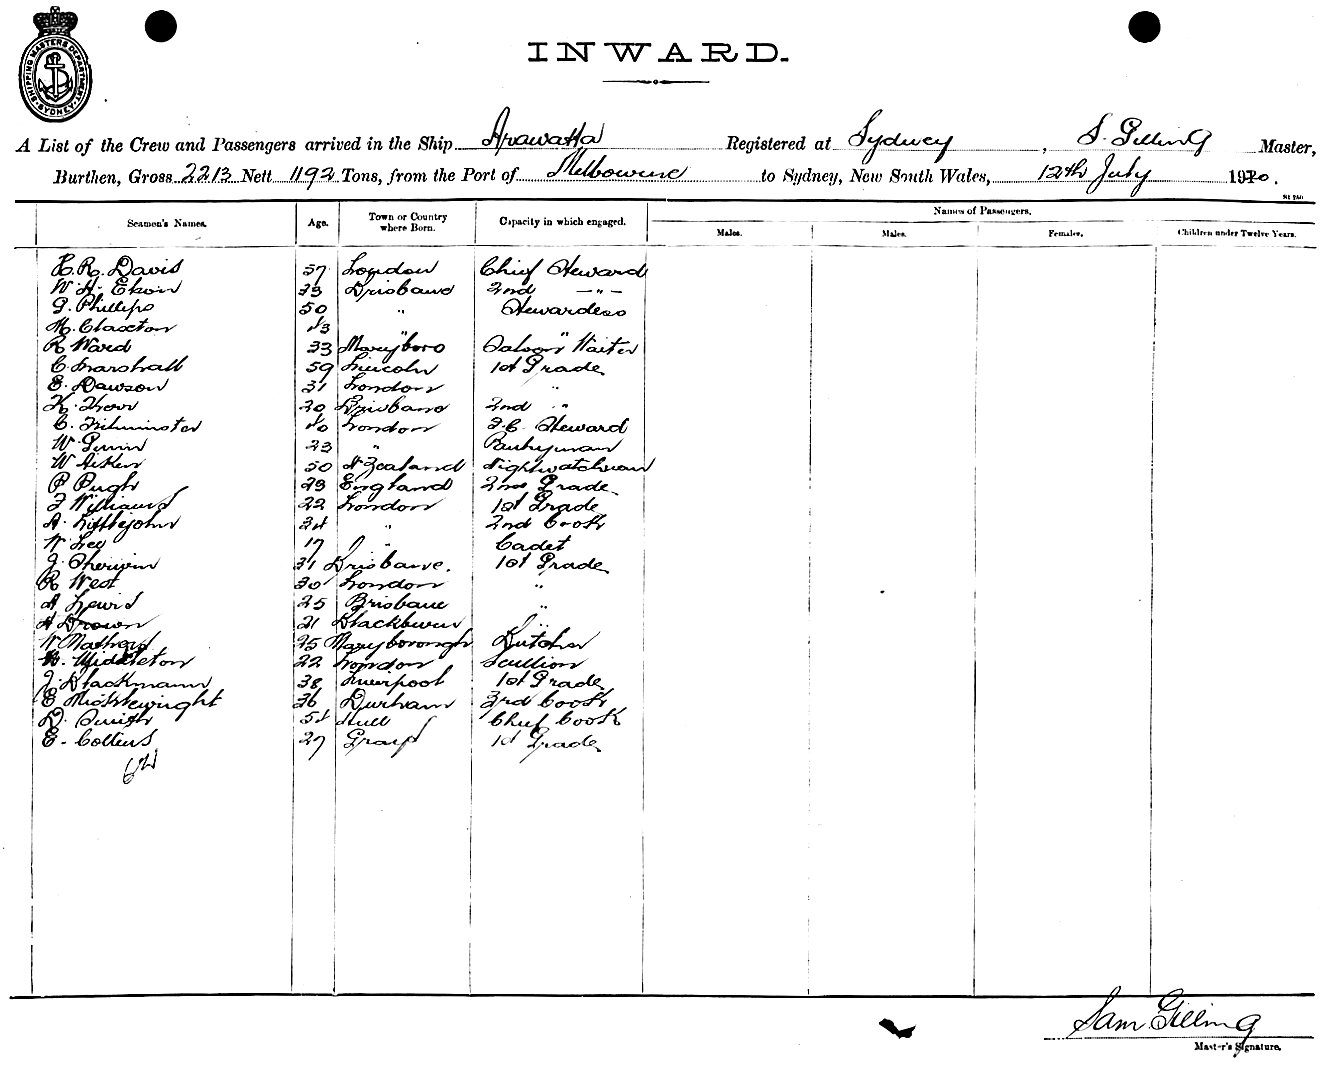 SHIPPING MASTERS DEPARTMENT SYDNEY
INWARD.
A List of the Crew and Passengers arrived in the Ship Arawatta Registered at Sydney, S. Gilling Master,
Burthen, Gross 2213 Nett 1192 Tons, from the Port of Melbourne to Sydney, New South Wales, 12th July 1920.
Seamen's Names. Age. Town or Country where Born. Capacity in which engaged. Names of Passengers.
Males. Males. Females. Children under Twelve Years.
H. R. Davis 57 London Chief Steward
W. H. 33 Brisbane 2nd —"—
G. Phillips 50 " Stewardess
M. Claxton 43 " "
R Ward 33 Mary'boro Saloon Waiter
C. Marshall 59 Lincoln 1st Grade
E. Dawson 31 London "
K. 20 Brisbane 2nd "
C. Kilminster 40 London F.C. Steward
W. 23 " Pantryman
W Aitken 50 N Zealand Nightwatchman
P Pugh 23 England 2nd Grade
F Williams 22 London 1st Grade
A. Littlejohn 34 " 2nd Cook
W Lee 17 " Cadet
J. Sherwin 31 Brisbane. 1st Grade
R West 30 London "
A Lewis 25 Brisbane "
A Brown 21 Blackburn "
W 25 Maryborough Butcher
H. Middleton 22 London Scullion
J. Blackmann 38 Liverpool 1st Grade
E Micklewright 36 Durham 3rd Cook
D. Smith 54 Hull Chief Cook
E. Collins 27 Grays 1st Grade
Sam Gilling
Master's Signature.